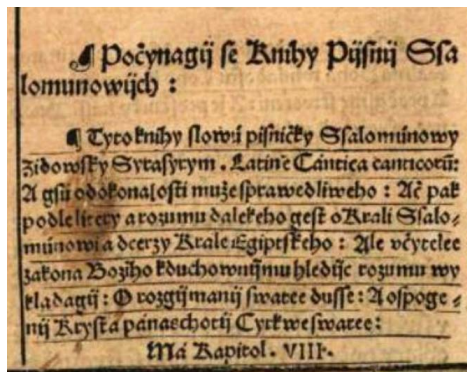 ¶ Počynagij se Knihy Pijsnij Ssa
lomunowijch :
¶ Tyto knihy slowú pisničky Ssalomúnowy
židowsky Syrasyrym . Latině Cántica canticorū:
A gsú o dokonalosti muže sprawedliweho : Ač pak
podle litery a rozumu dalekeho gest o Krali Ssalo-
múnowi a dcerzy Krale Egiptského : Ale včytelee
zakona Božiho k duchownijmu hledijc rozumu wy
kladagij : O rozgijmanij swatee dusse : A o spoge-
nij Krysta pána s chotij Cyrkwe swatee :
Má Kapitol . VIII .